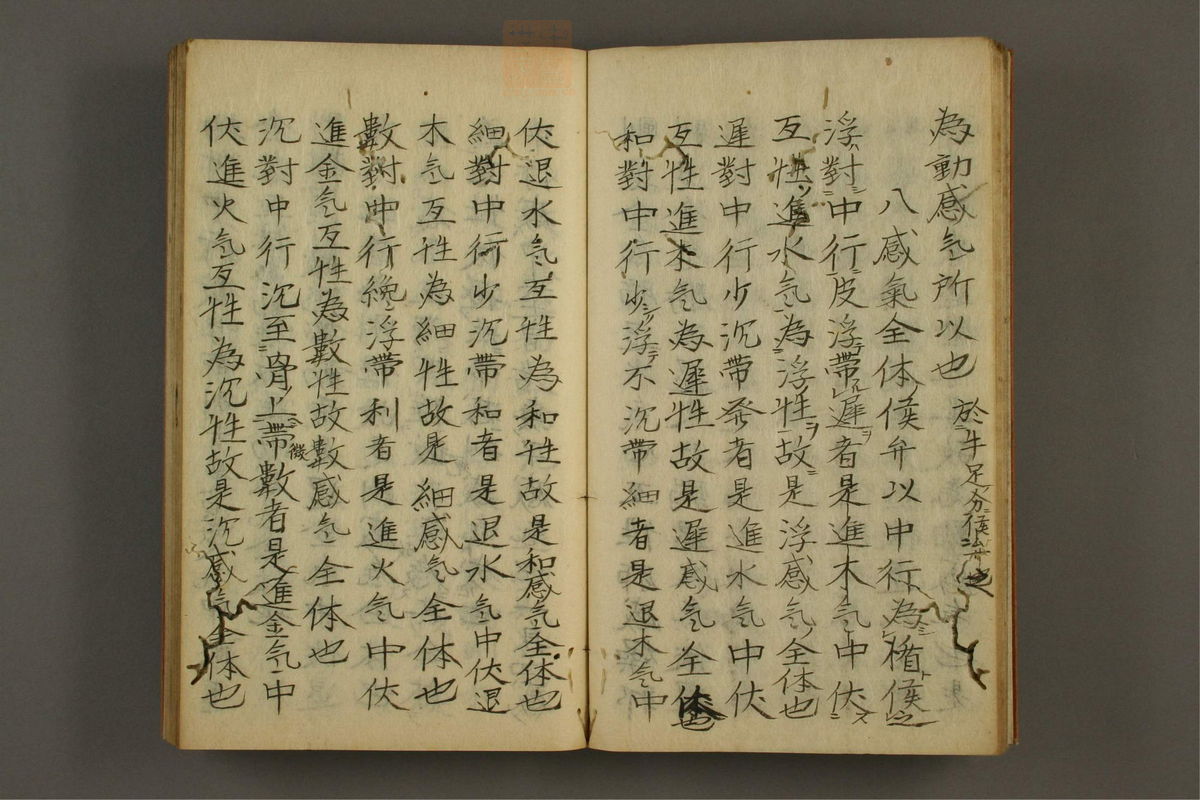 為動感気所以也 於牛足分候
八感氣全体候弁以中行為楯候之
浮對中行皮浮帶遲者是進木気中伏
互性進水気為浮性故是浮感気全体也
遲對中行少沉帶者是進水気中伏
互性進木気為遲性故是遲感気全体也
和對中行少浮不沉帶細者是退木気中
伏退水気互性為和性故是和感気全体也
細對中行少沉帶和者是退水気中伏退
木気互性為細性故是細感気全体也
數對中行繞浮帶利者是進火気中伏
進金気互性為數性故數感気全体也
沉對中行沉至骨上帶微數者是進金気中
伏進火気互性為沉性故是沉感気全体也